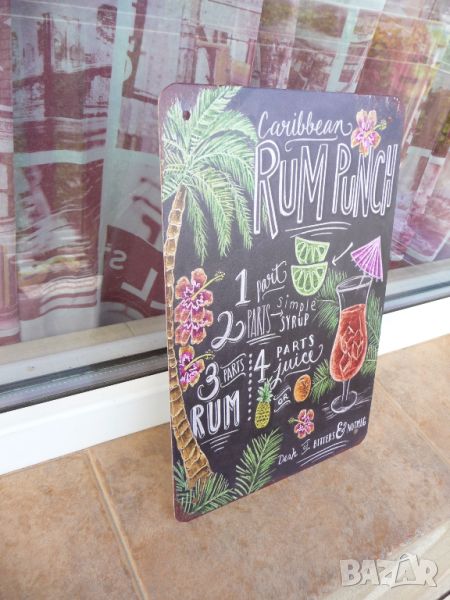 Caribbean
RUM PUNCH
1 part
2 PARTS simple SYRUP
3 PARTS RUM
4 PARTS juice
OR
Dash of BITTERS & NUTMEG
BAZAR